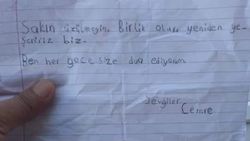 Sakın üzülmeyin. Birlik olup yeniden ye-
şeririz biz.
Ben her gece size dua ediyorum
Sevgiler
Cemre